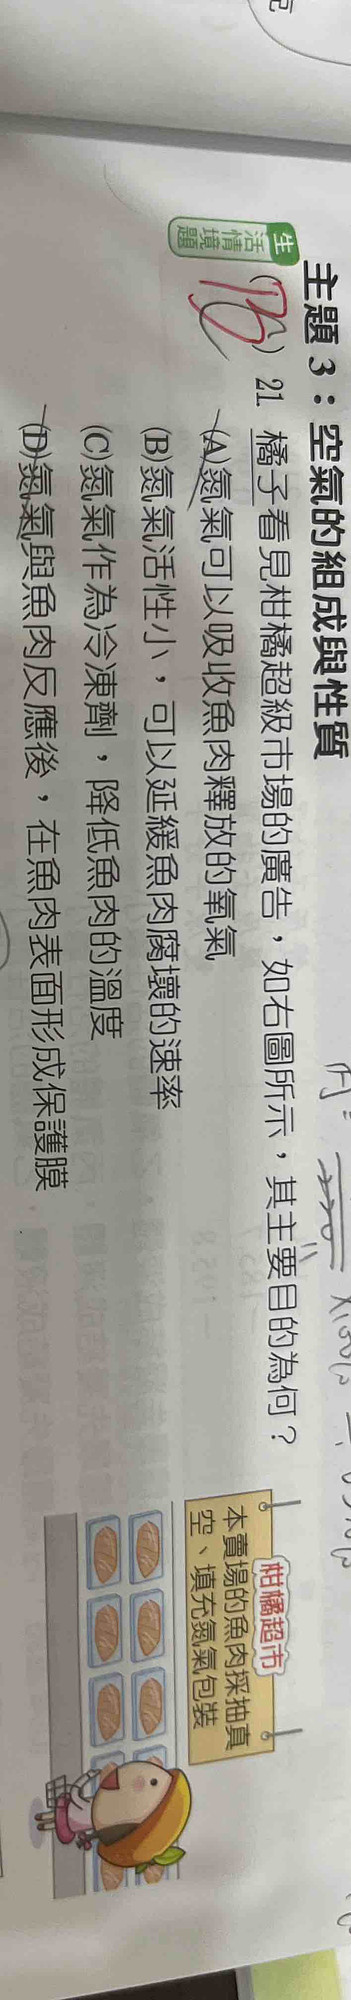 主題3：空氣的組成與性質
生
活情境題
(B) 21. 橘子看見柑橘超級市場的廣告，如右圖所示，其主要目的為何？
(A)氮氣可以吸收魚肉釋放的氧氣
(B)氮氣活性小，可以延緩魚肉腐壞的速率
(C)氮氣作為冷凍劑，降低魚肉的溫度
(D)氮氣與魚肉反應後，在魚肉表面形成保護膜
柑橘超市
本賣場的魚肉採抽真
空、填充氮氣包裝